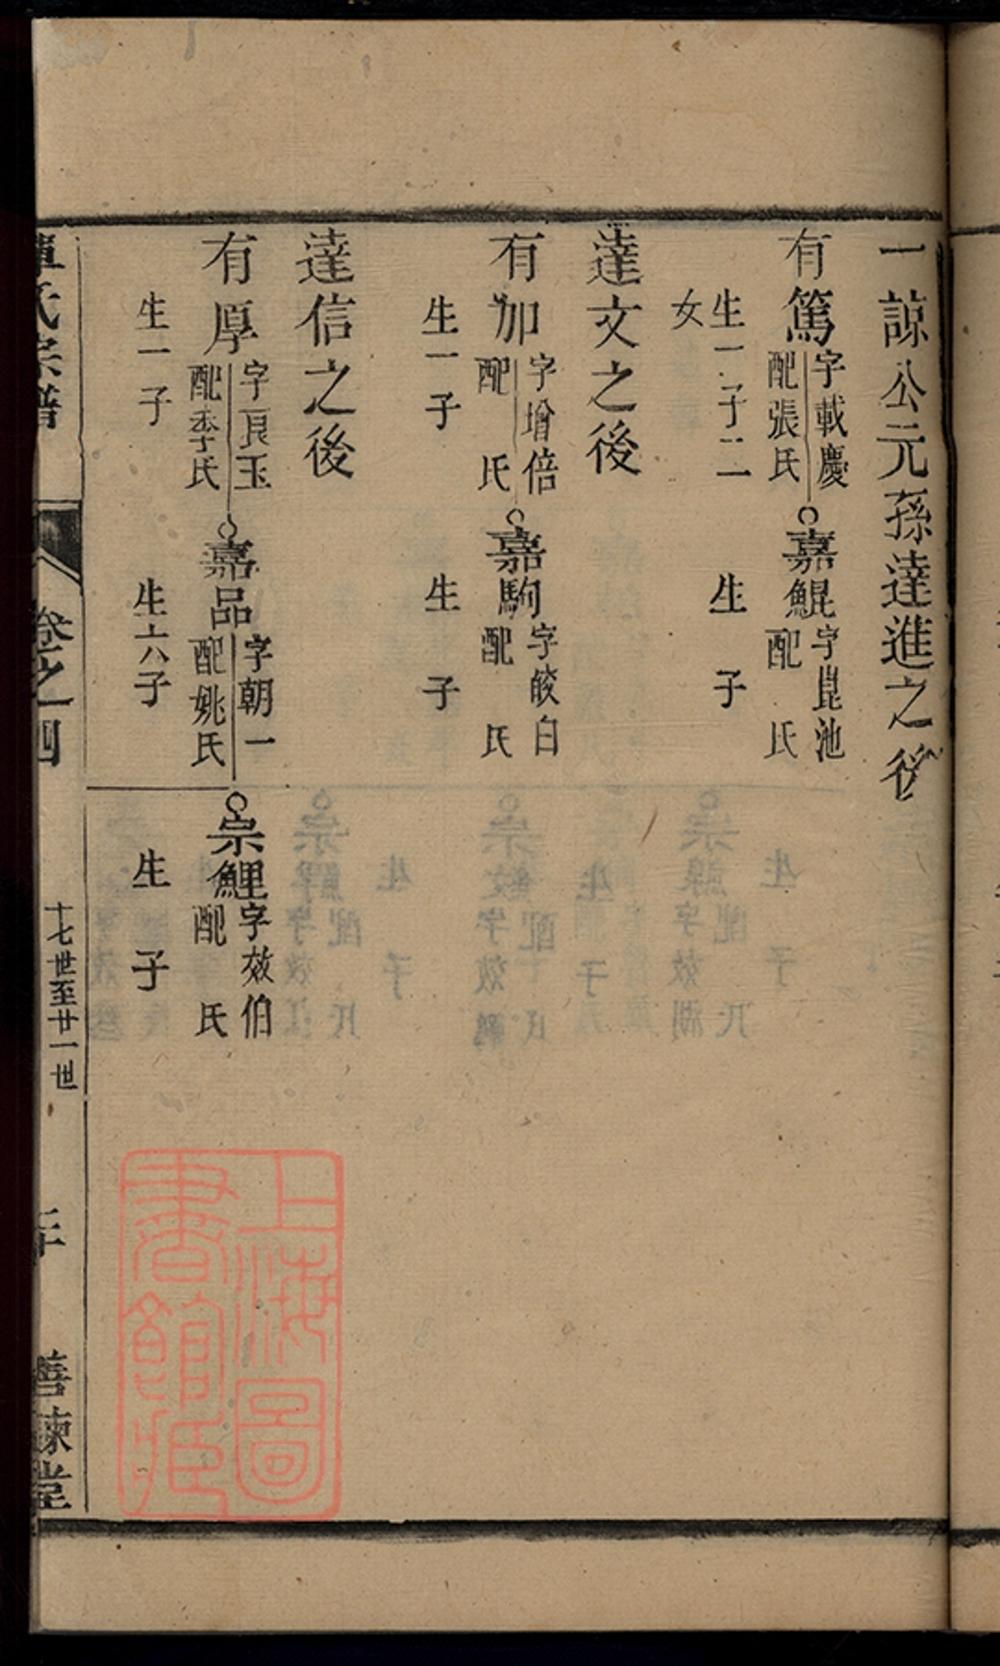 一諒公元孫達進之後
有篤
字載慶
配張氏
生一子二
女
嘉鯤
字崑池
配 氏
生 子
達文之後
有加
字增倍
配 氏
生一子
嘉駒
字皎白
配 氏
生 子
達信之後
有厚
字良玉
配李氏
生一子
嘉品
字朝一
配姚氏
生六子
宗鯉
字效伯
配 氏
生 子
氏宗譜
卷之四
十七世至廿一世
善諫堂
上海圖
書館藏